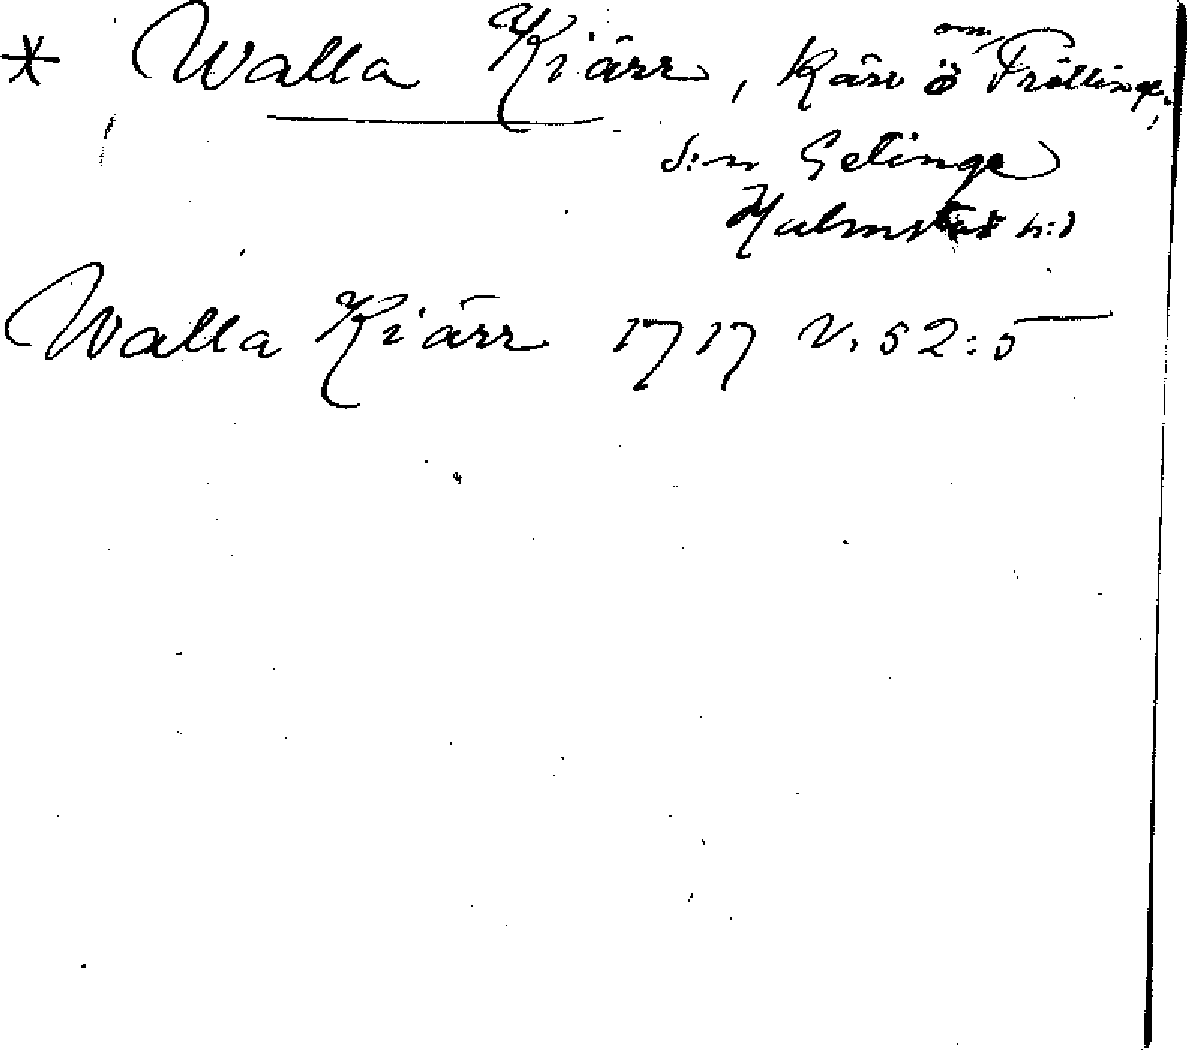 * Walla Kiärr, Kärr ö om Fröllinge,
s:n Getinge
Halmstad h:d
Walla Kiärr 1717 V. 52:5